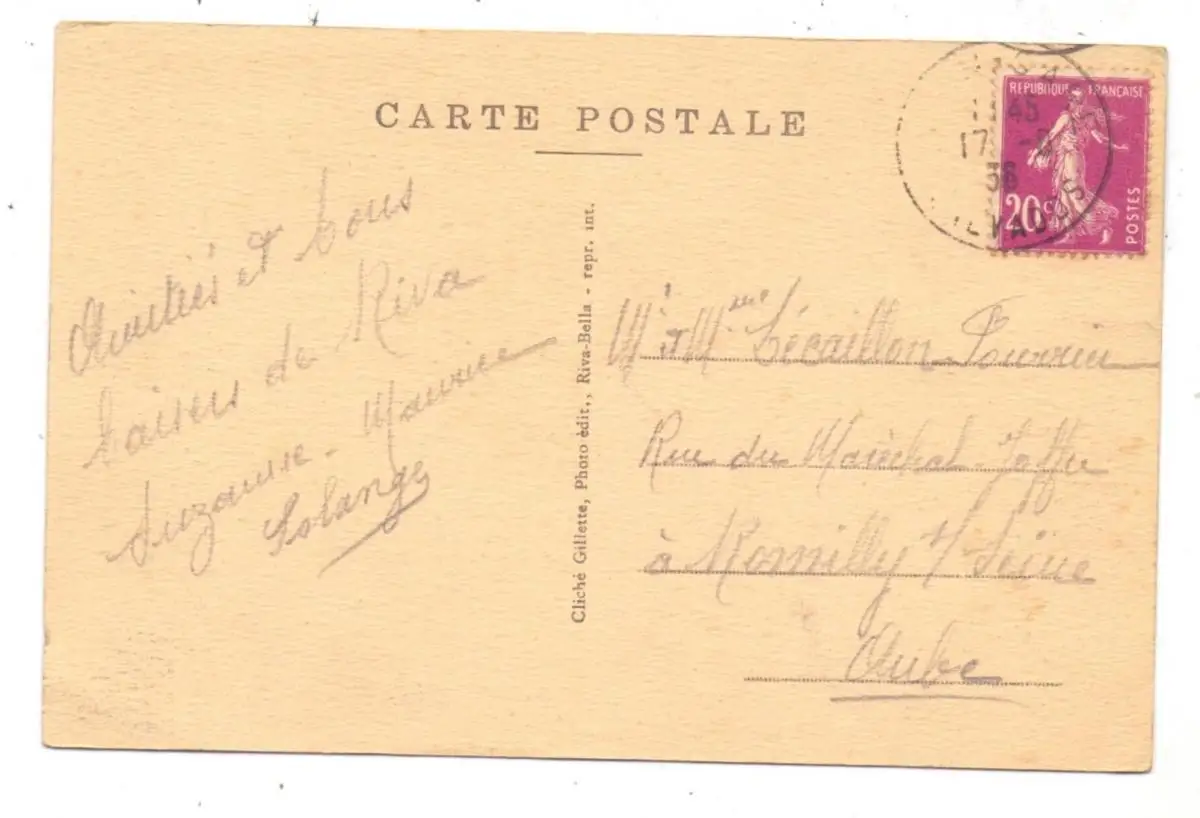 CARTE POSTALE
Amitiés et bons
baisers de Riva
Suzanne - Maurice
Solange
Cliché Gillette, Photo édit., Riva-Bella - repr. int.
RÉPUBLIQUE FRANÇAISE
20c
POSTES
45
17 -8
36
CALVADOS
Mr & Mme
Rue du Maréchal Joffre
à Romilly s/ Seine
Aube